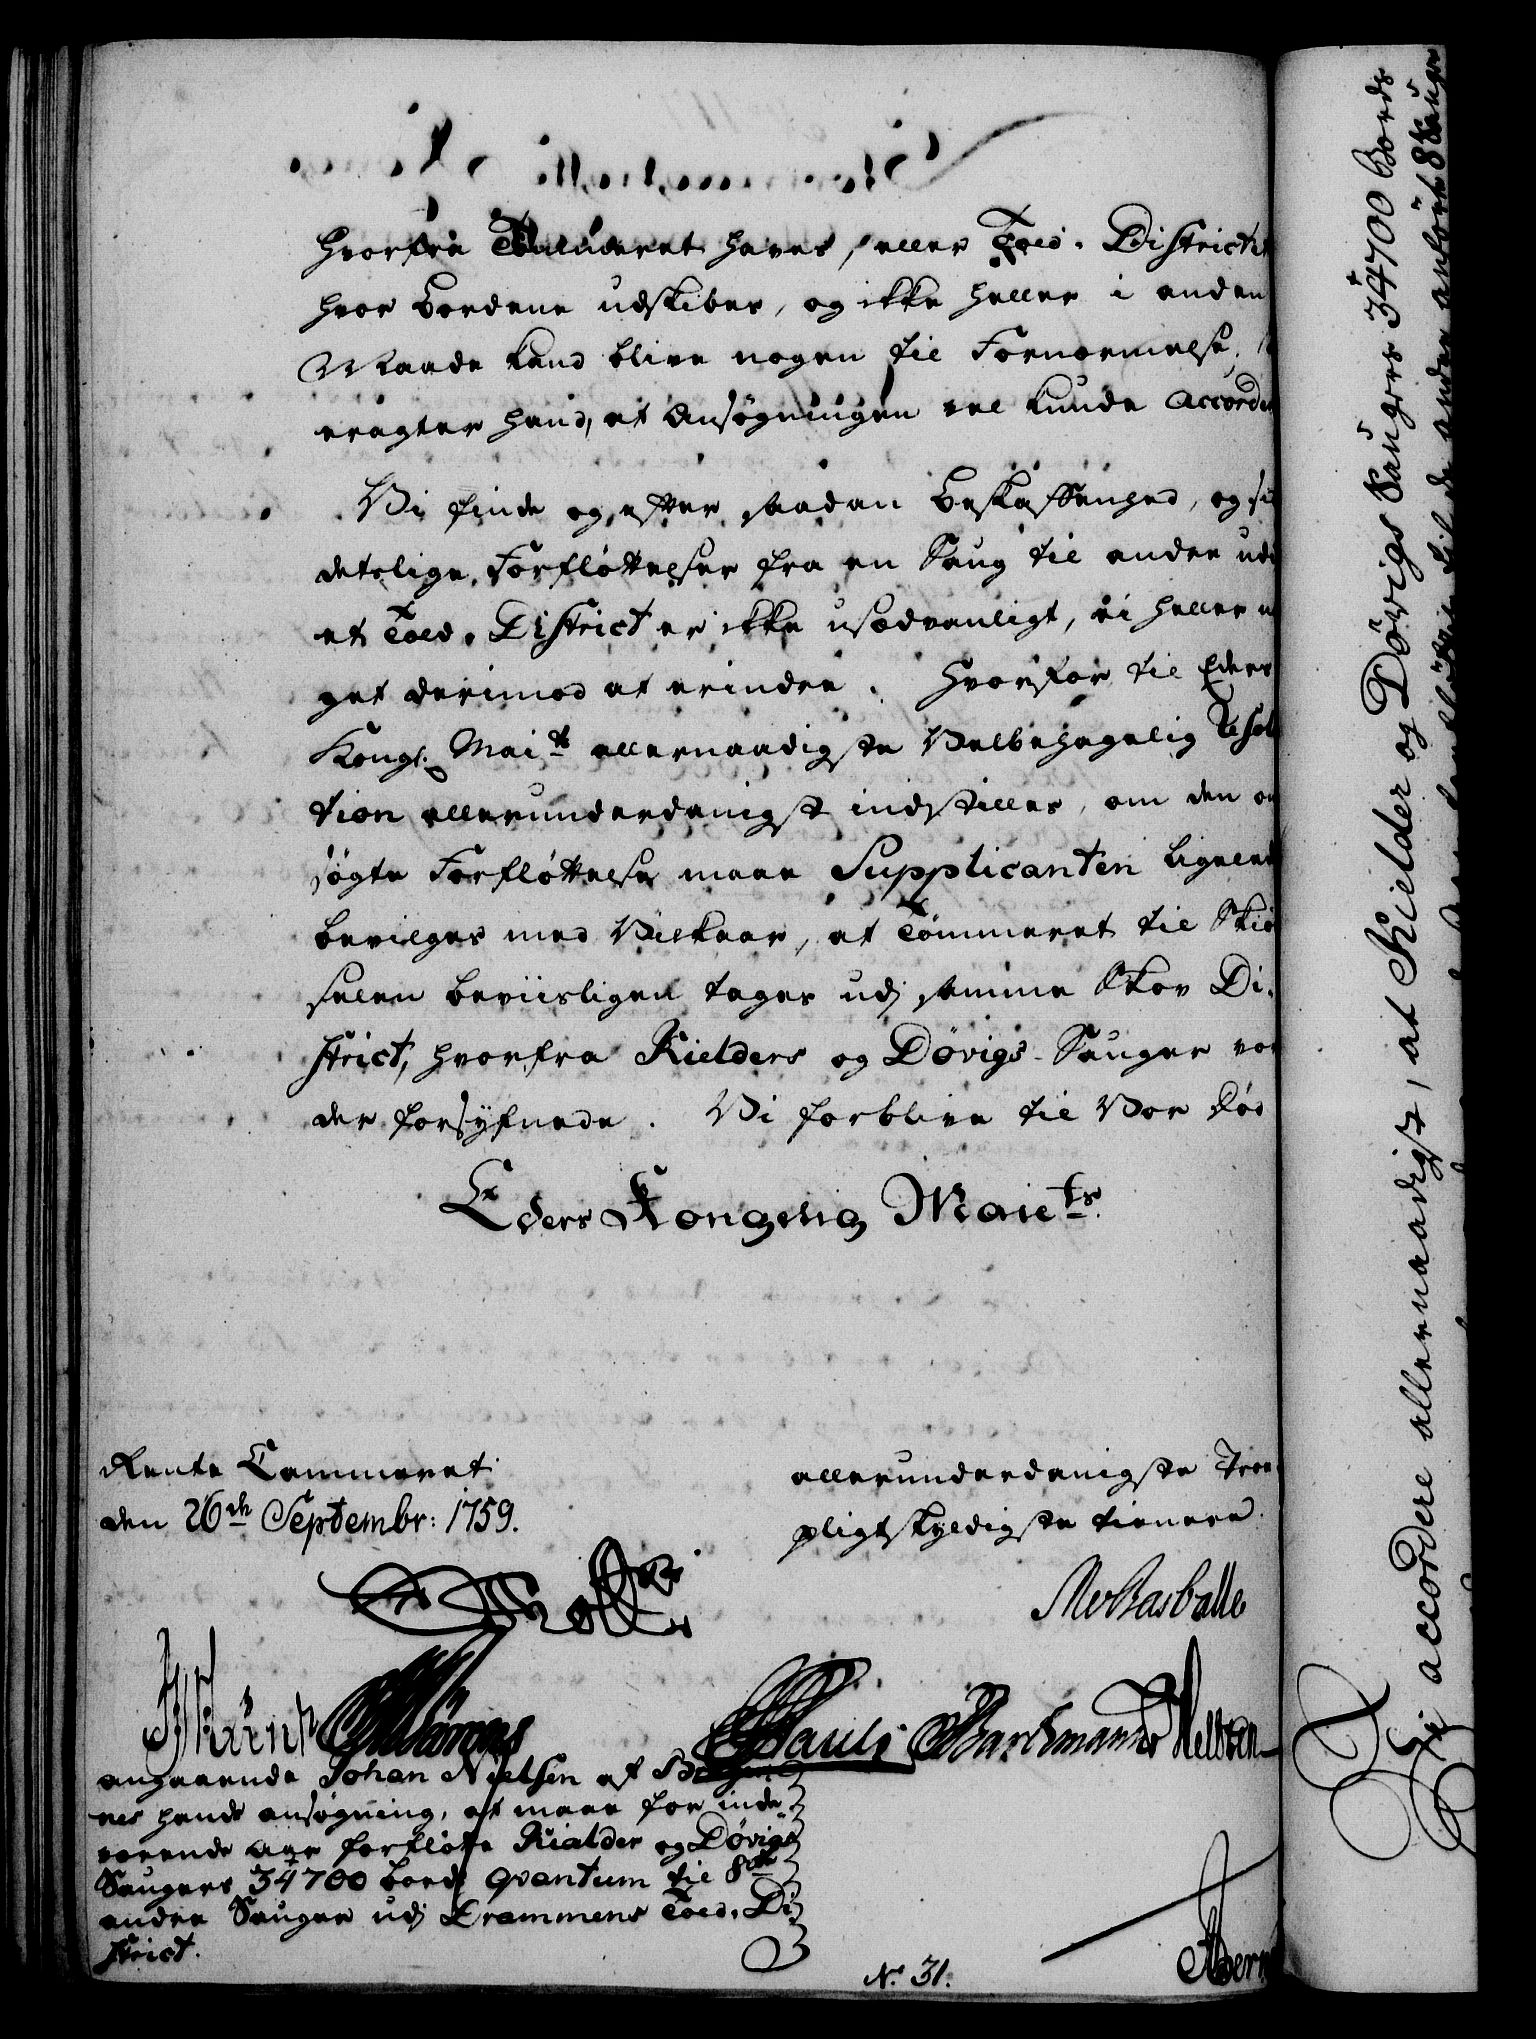 hvorfra Tømmeret haves, eller Told-District
hvor Bordene udskibes, og ikke heller i anden
Maade kand blive nogen til Fornærmelse,
eragter hand, at Ansøgningen vel kunde accorde
Vi finde og, efter saadan Beskaffenhed, og si
detslige Forfløttelser fra en Saug til andre udi
et Told-District er ikke usædvanligt, ei heller no
get derimod at erindre. Hvorfor til Eders
Kongl. Mait allernaadigste Velbehagelig Resolu
tion allerunderdanigst indstilles, om den an
søgte Forfløttelse maae Supplicanten ligeled
bevilges med Vilkaar, at Tømmeret til Skiæ
selen beviisligen tages udj samme Skov Di-
strict, hvorfra Kielders og Døvigs-Sauger vor
der forsÿnede. Vi forblive til Vor Død
Eders Kongelig Maiets.
Rente Cammeret
den 26de Septembr: 1759.
allerunderdanigste Troe
pligtskyldigste tienere.
angaaende Johan Nielsen af
nes hands ansøgning, at maae for inde-
værende Aar forfløtte Kielder og Døvigs
Saugers 34700 bord qvantum til 8te
andre Sauger udj Drammens Told-Di-
strict.
No. 31.
Vj accordere allernaadigst, at Kielder og Døvigs Saugers 34700 Bords